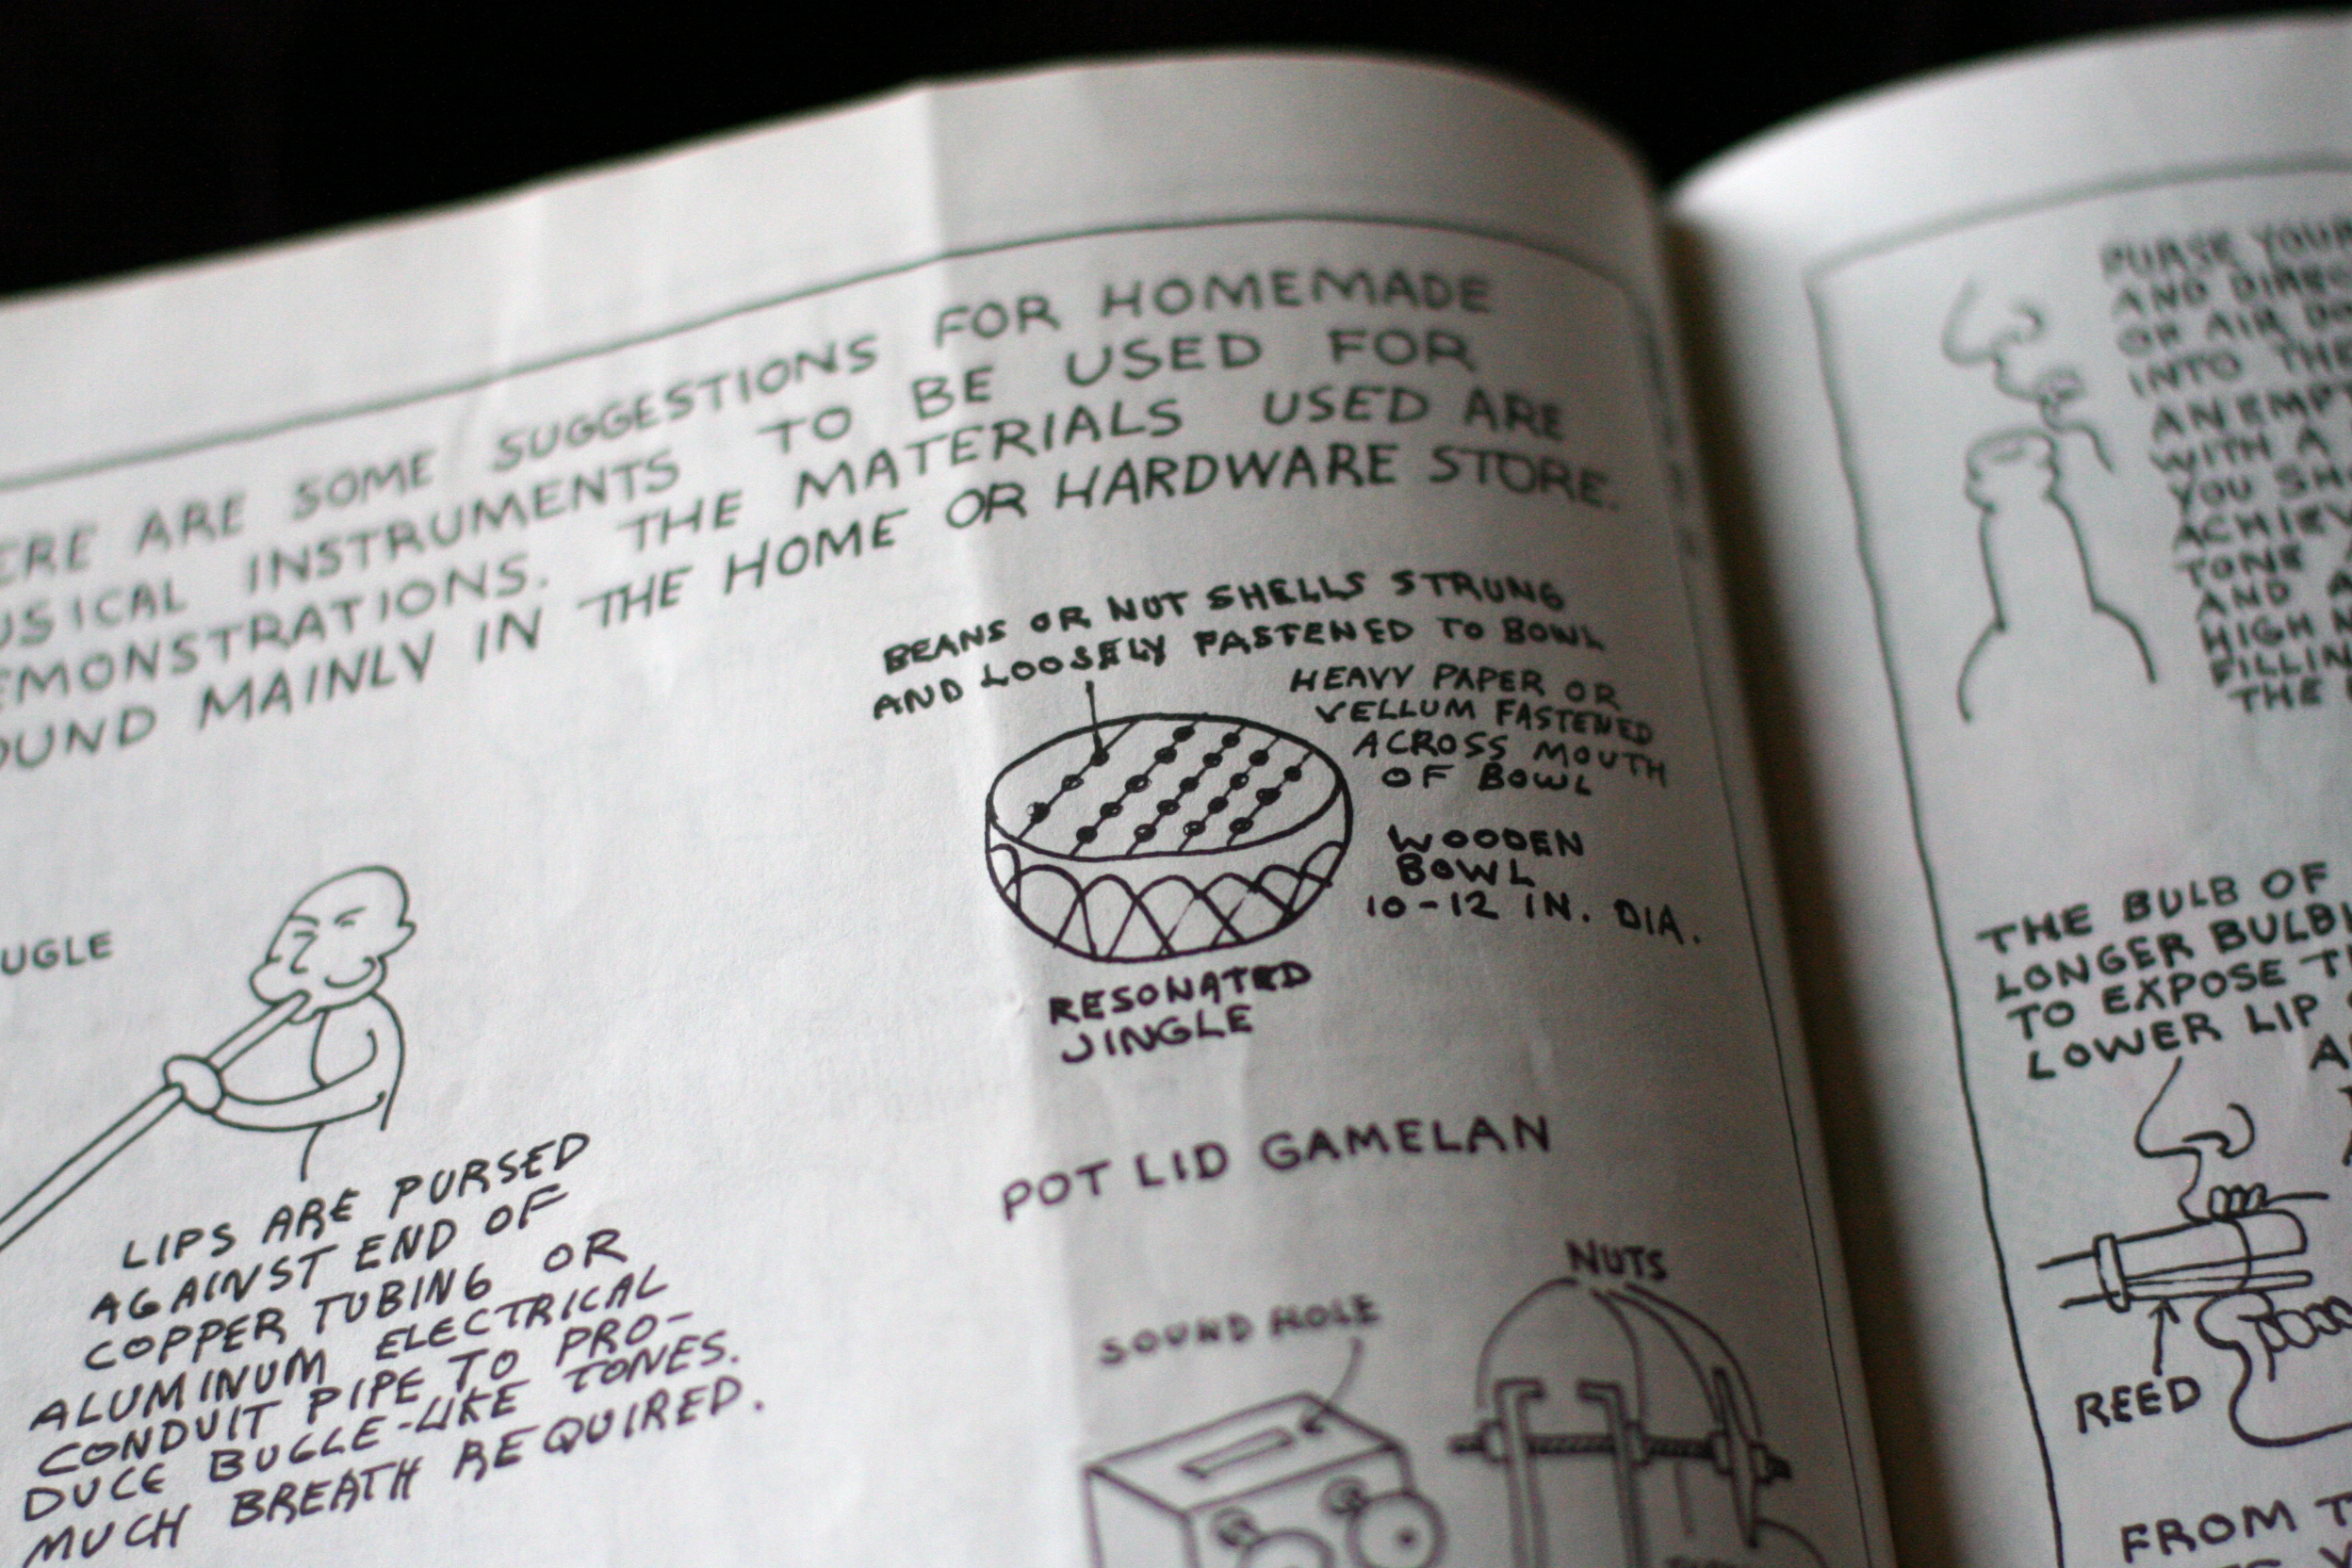 ERE ARE SOME SUGGESTIONS FOR HOMEMADE
USICAL INSTRUMENTS TO BE USED FOR
EMONSTRATIONS. THE MATERIALS USED ARE
OUND MAINLY IN THE HOME OR HARDWARE STORE.
BEANS OR NUT SHELLS STRUNG
AND LOOSELY FASTENED TO BOWL
HEAVY PAPER OR
VELLUM FASTENED
ACROSS MOUTH
OF BOWL
WOODEN
BOWL
10-12 IN. DIA.
RESONATED
JINGLE
UGLE
LIPS ARE PURSED
AGAINST END OF
COPPER TUBING OR
ALUMINUM ELECTRICAL
CONDUIT PIPE TO PRO-
DUCE BUGLE-LIKE TONES.
MUCH BREATH REQUIRED.
POT LID GAMELAN
NUTS
SOUND HOLE
PURSE YOUR
AND DIREC
OF AIR DO
INTO THE
AN EMPT
WITH A
YOU SH
ACHIEV
TONE
AND A
HIGH
FILLIN
THE
THE BULB OF
LONGER BULB
TO EXPOSE T
LOWER LIP
A
REED
FROM T